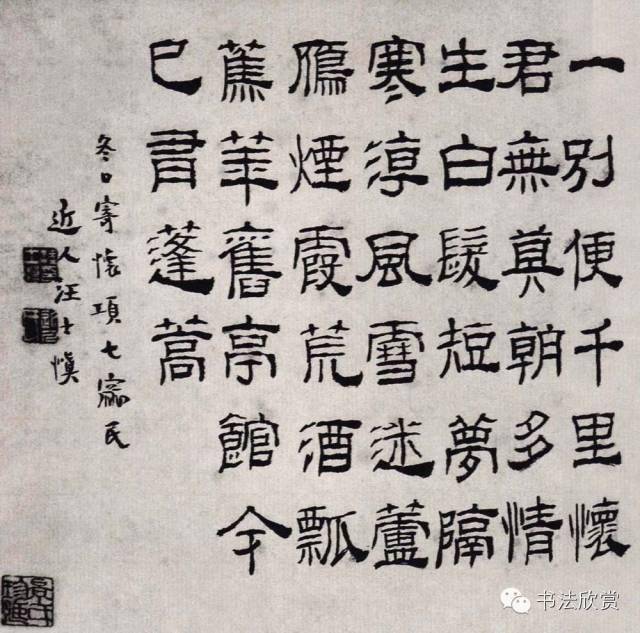 一別便千里懷
君無莫朝多情
生白髮短夢隔
寒潮風雪迷蘆
鴈煙霞荒酒瓢
蕉華舊亭館今
已胥蓬蒿
冬日寄懷項七寧民
近人汪士慎
书法欣赏